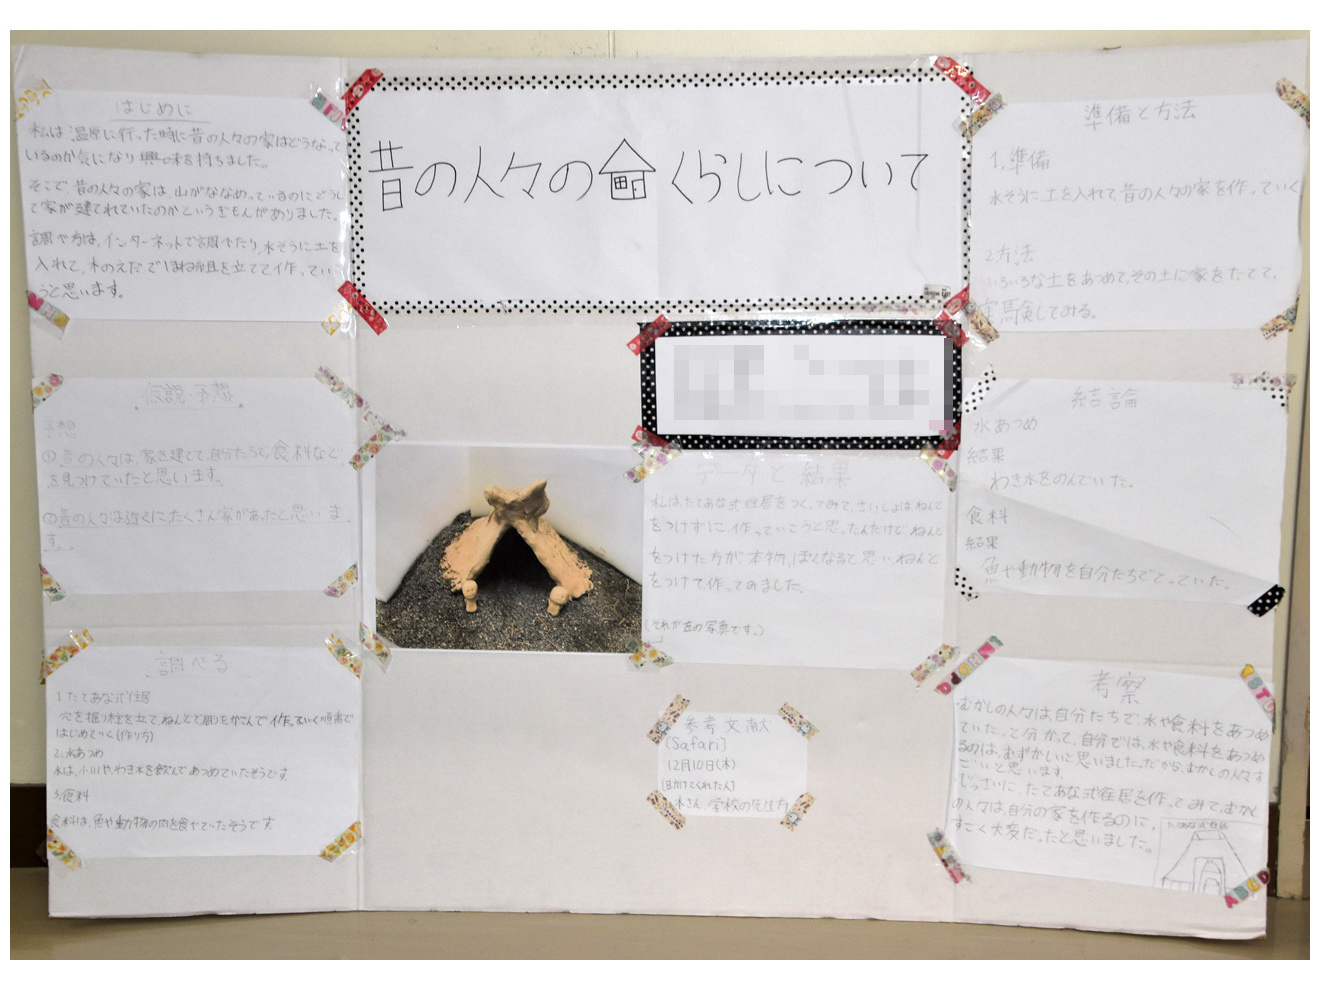 昔の人々の家くらしについて
はじめに
私は、温泉に行った時に昔の人々の家はどうなって
いるのか気になり興味を持ちました。
そこで、昔の人々の家は、山がななめっているのにどうし
て家が建てれていたのかというぎもんがありました。
調べ方は、インターネットで調べたり、水そうに土を
入れて、木のえだでほね組を立てて作ってい
こうと思います。
仮説・予想
予想
①昔の人々は、家を建てて、自分たちで食料など
を見つけていたと思います。
②昔の人々は近くにたくさん家があったと思いま
す。
調べる
1.たてあな式住居
穴を掘り柱を立て、ねんどで周りをかこんで作っていく順番で
はじめていく(作り方)
2.水あつめ
水は、小川や、わき水を飲んであつめていたそうです
3.食料
食料は、魚や動物の肉を食べていたそうです。
データと結果
私は、たてあな式住居をつくってみて、さいしょは、ねんど
をつけずに、作っていこうと思ったんだけど、ねんど
をつけた方が、本物っぽくなると思い、ねんど
をつけて作ってみました。
(それが左の写真です。)
参考文献
[Safari]
12月10日(木)
木さん、学校の先生方
準備と方法
1.準備
水そうに土を入れて、昔の人々の家を作っていく
2.方法
いろいろな土をあつめて、その土に家をたてて、
実験してみる。
結論
水あつめ
結果
わき水をのんでいた。
食料
結果
魚や動物を自分たちでとっていた。
考察
・むかしの人々は、自分たちで、水や食料をあつめ
ていたって分かって、自分では、水や食料をあつめ
るのは、むずかしいと思いました。だから、むかしの人々はす
ごいと思います。
・じっさいに、たてあな式住居を作ってみて、むかし
の人々は、自分の家を作るのに、
すごく大変だったと思いました。
たてあな式住居